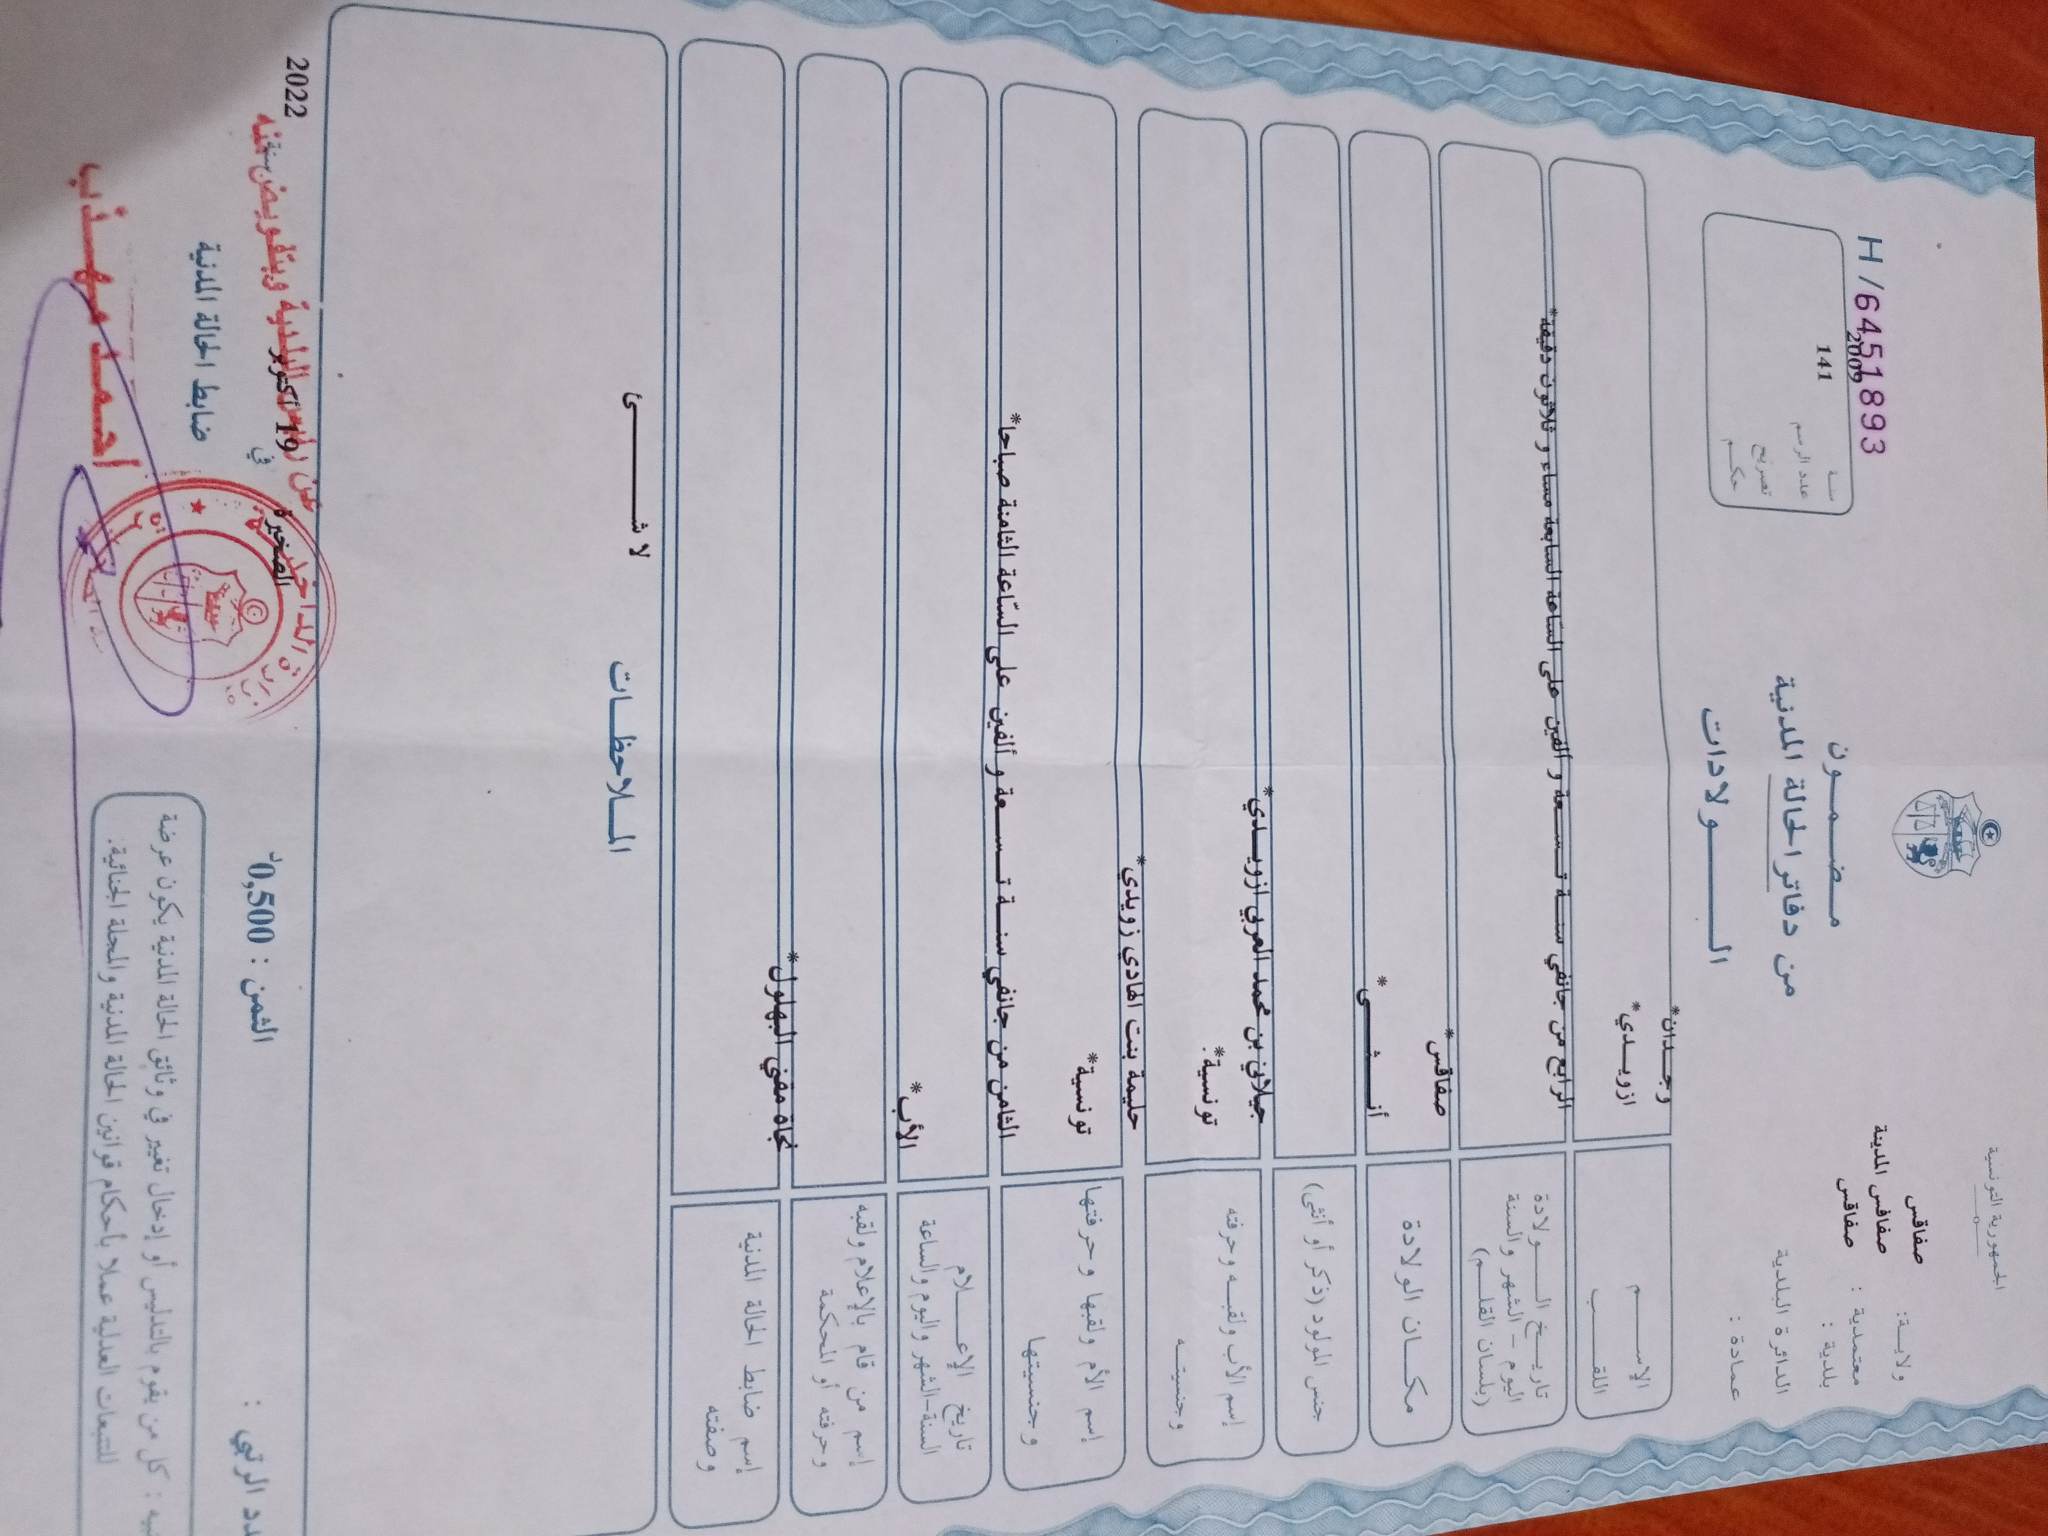 الجمهورية التونسية
ولاية: صفاقس
معتمدية : صفاقس المدينة
بلدية : صفاقس
الدائرة البلدية
عمادة :
مضـمـــون
من دفاتر الحالة المدنية
الـــــولادات
H/6451893
سنة 2009
عدد الرسم 141
تصريح
حكم
الإســـم وجـدان*
اللقـــب ازويـدي*
تاريـخ الـــولادة
اليوم - الشهر والسنة
(بلسان القلـــم)
الرابع من جانفي سنـــة تـــسعة و ألفين على السّاعة السابعة مساء و ثلاثون دقيقة*
مكـان الولادة صفاقس*
جنس المولود (ذكر أو أنثى) أنـــثـــى*
إسم الأب ولقبـه وحرفته جيلاني بن محمد العربي ازويـدي*
وجنسيتـــه تونسية*.
إسم الأم ولقبها وحرفتها حليمة بنت الهادي زويدي*
وجنسيتها تونسية*
تاريخ الإعــلام
السنة-الشهر واليوم والساعة
الثامن من جانفي سنـــة تـــسعة و ألفين على السّاعة الثامنة صباحا*
إسم من قام بالإعلام ولقبه الأب*
وحرفته أو المحكمة
إسم ضابط الحالة المدنية نجاة مفني البهلول*
وصفته
المـلاحظـات
لا شـــــئ
الصخيرة في 19 أكتوبر سنة 2022
عن رئيس البلدية وبتفويض منه
ضابط الحالة المدنية
احمد مهذب
وزارة الداخلية
الثمن : 0,500د
دد الرتبي :
يه : كل من يقوم بالتدليس أو إدخال تغيير في وثائق الحالة المدنية يكون عرضة
للتتبعات العدلية عملا بأحكام قوانين الحالة المدنية والمجلة الجنائية.